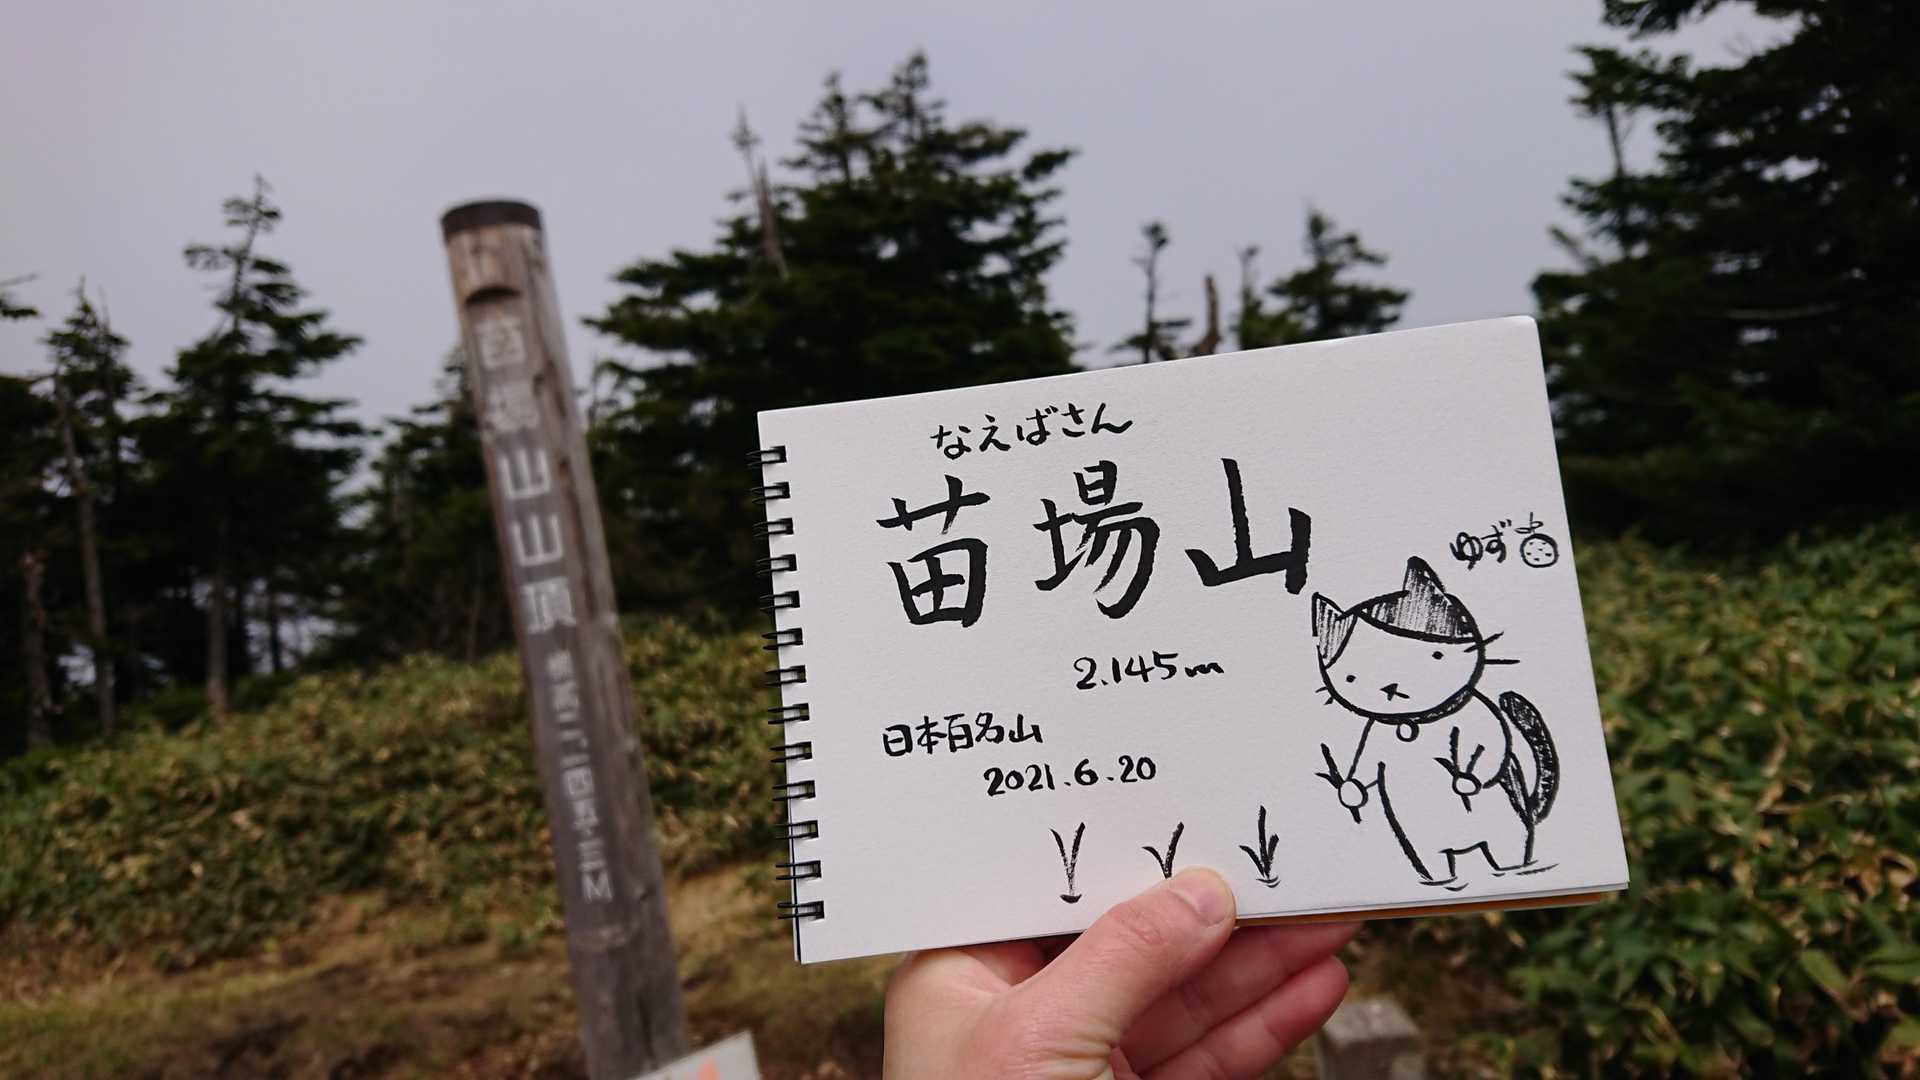 苗場山山頂 標高二一四五.三M
なえばさん
苗場山
ゆず
2.145m
日本百名山
2021.6.20